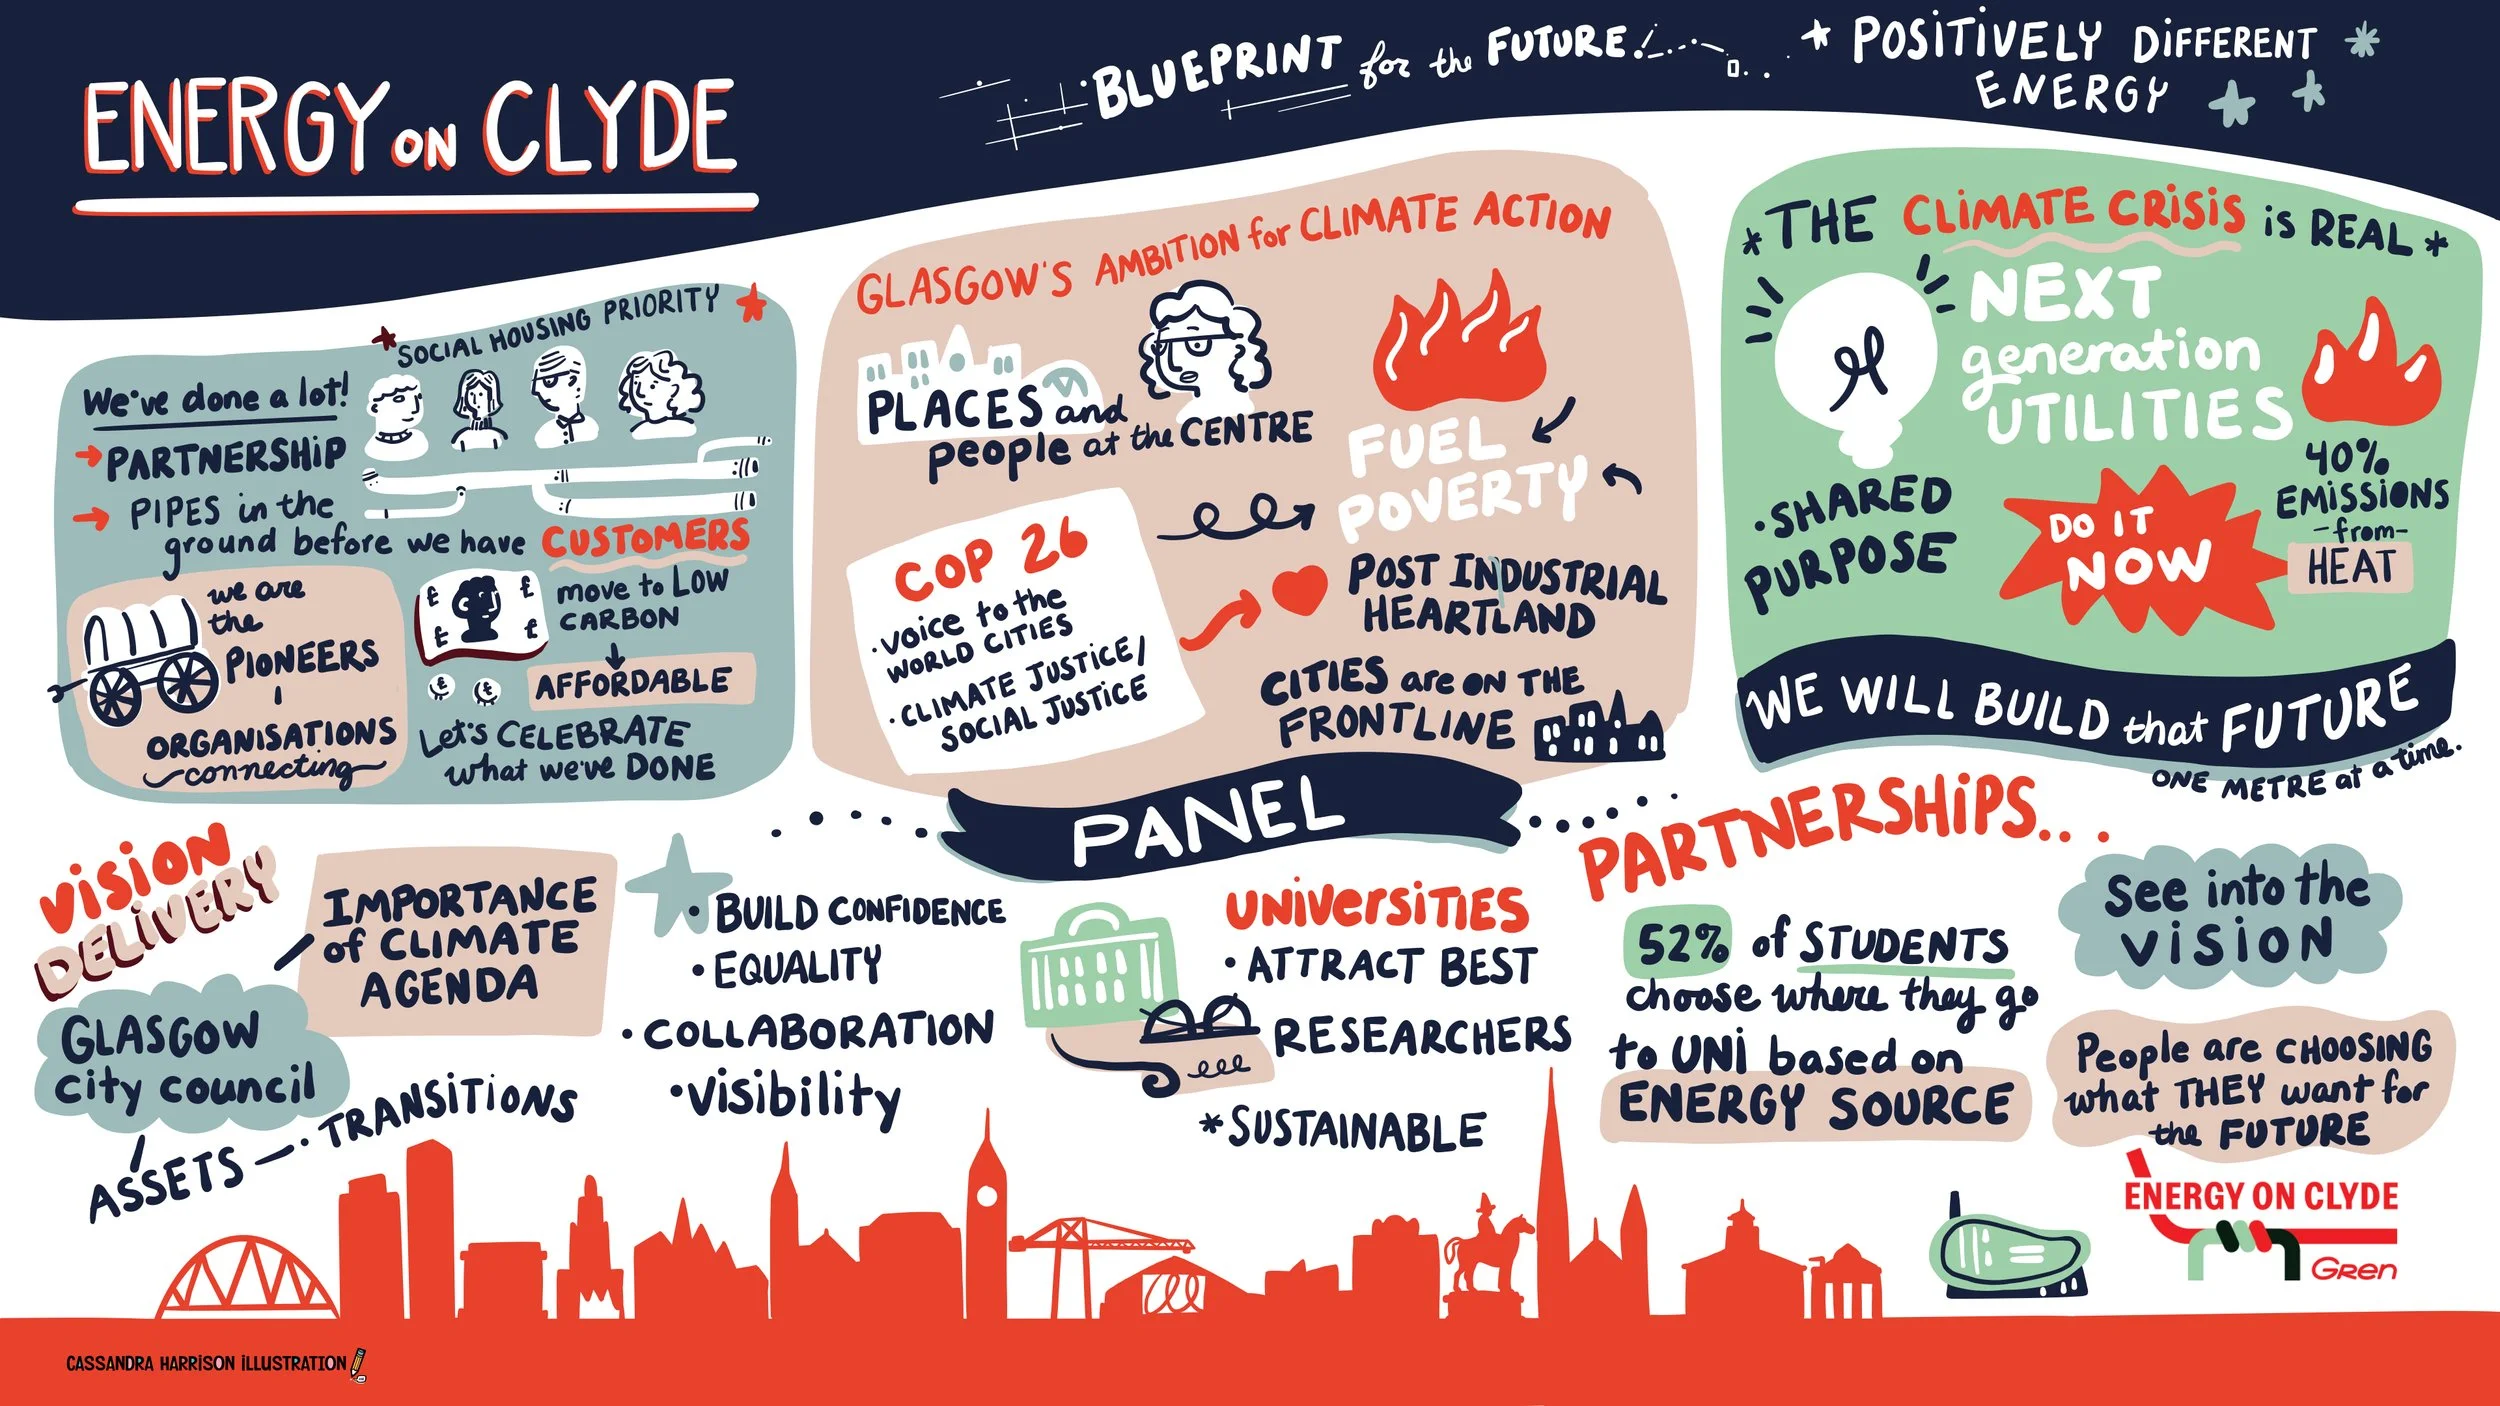 ENERGY ON CLYDE
BLUEPRINT for the FUTURE!
POSITIVELY DIFFERENT
ENERGY
SOCIAL HOUSING PRIORITY
We've done a lot!
PARTNERSHIP
PIPES in the
ground before we have CUSTOMERS
we are
the
PIONEERS
ORGANISATIONS
connecting
£ £
£ £
move to LOW
CARBON
£ £
AFFORDABLE
Let's CELEBRATE
what we've DONE
GLASGOW'S AMBITION for CLIMATE ACTION
PLACES and
people at the CENTRE
FUEL
POVERTY
COP 26
• VOICE to the
WORLD CITIES
• CLIMATE JUSTICE/
SOCIAL JUSTICE
POST INDUSTRIAL
HEARTLAND
CITIES are ON THE
FRONTLINE
* THE CLIMATE CRISIS is REAL *
NEXT
generation
UTILITIES
• SHARED
PURPOSE
DO IT
NOW
40%
EMISSIONS
-from-
HEAT
WE WILL BUILD that FUTURE
ONE METRE at a time.
PANEL
VISION
DELIVERY
IMPORTANCE
of CLIMATE
AGENDA
GLASGOW
city council
ASSETS — TRANSITIONS
• BUILD CONFIDENCE
• EQUALITY
• COLLABORATION
• Visibility
UNIVERSITIES
• ATTRACT BEST
RESEARCHERS
* SUSTAINABLE
PARTNERSHIPS...
52% of STUDENTS
choose where they go
to UNI based on
ENERGY SOURCE
See into the
VISION
People are CHOOSING
what THEY want for
the FUTURE
ENERGY ON CLYDE
Gren
CASSANDRA HARRISON ILLUSTRATION